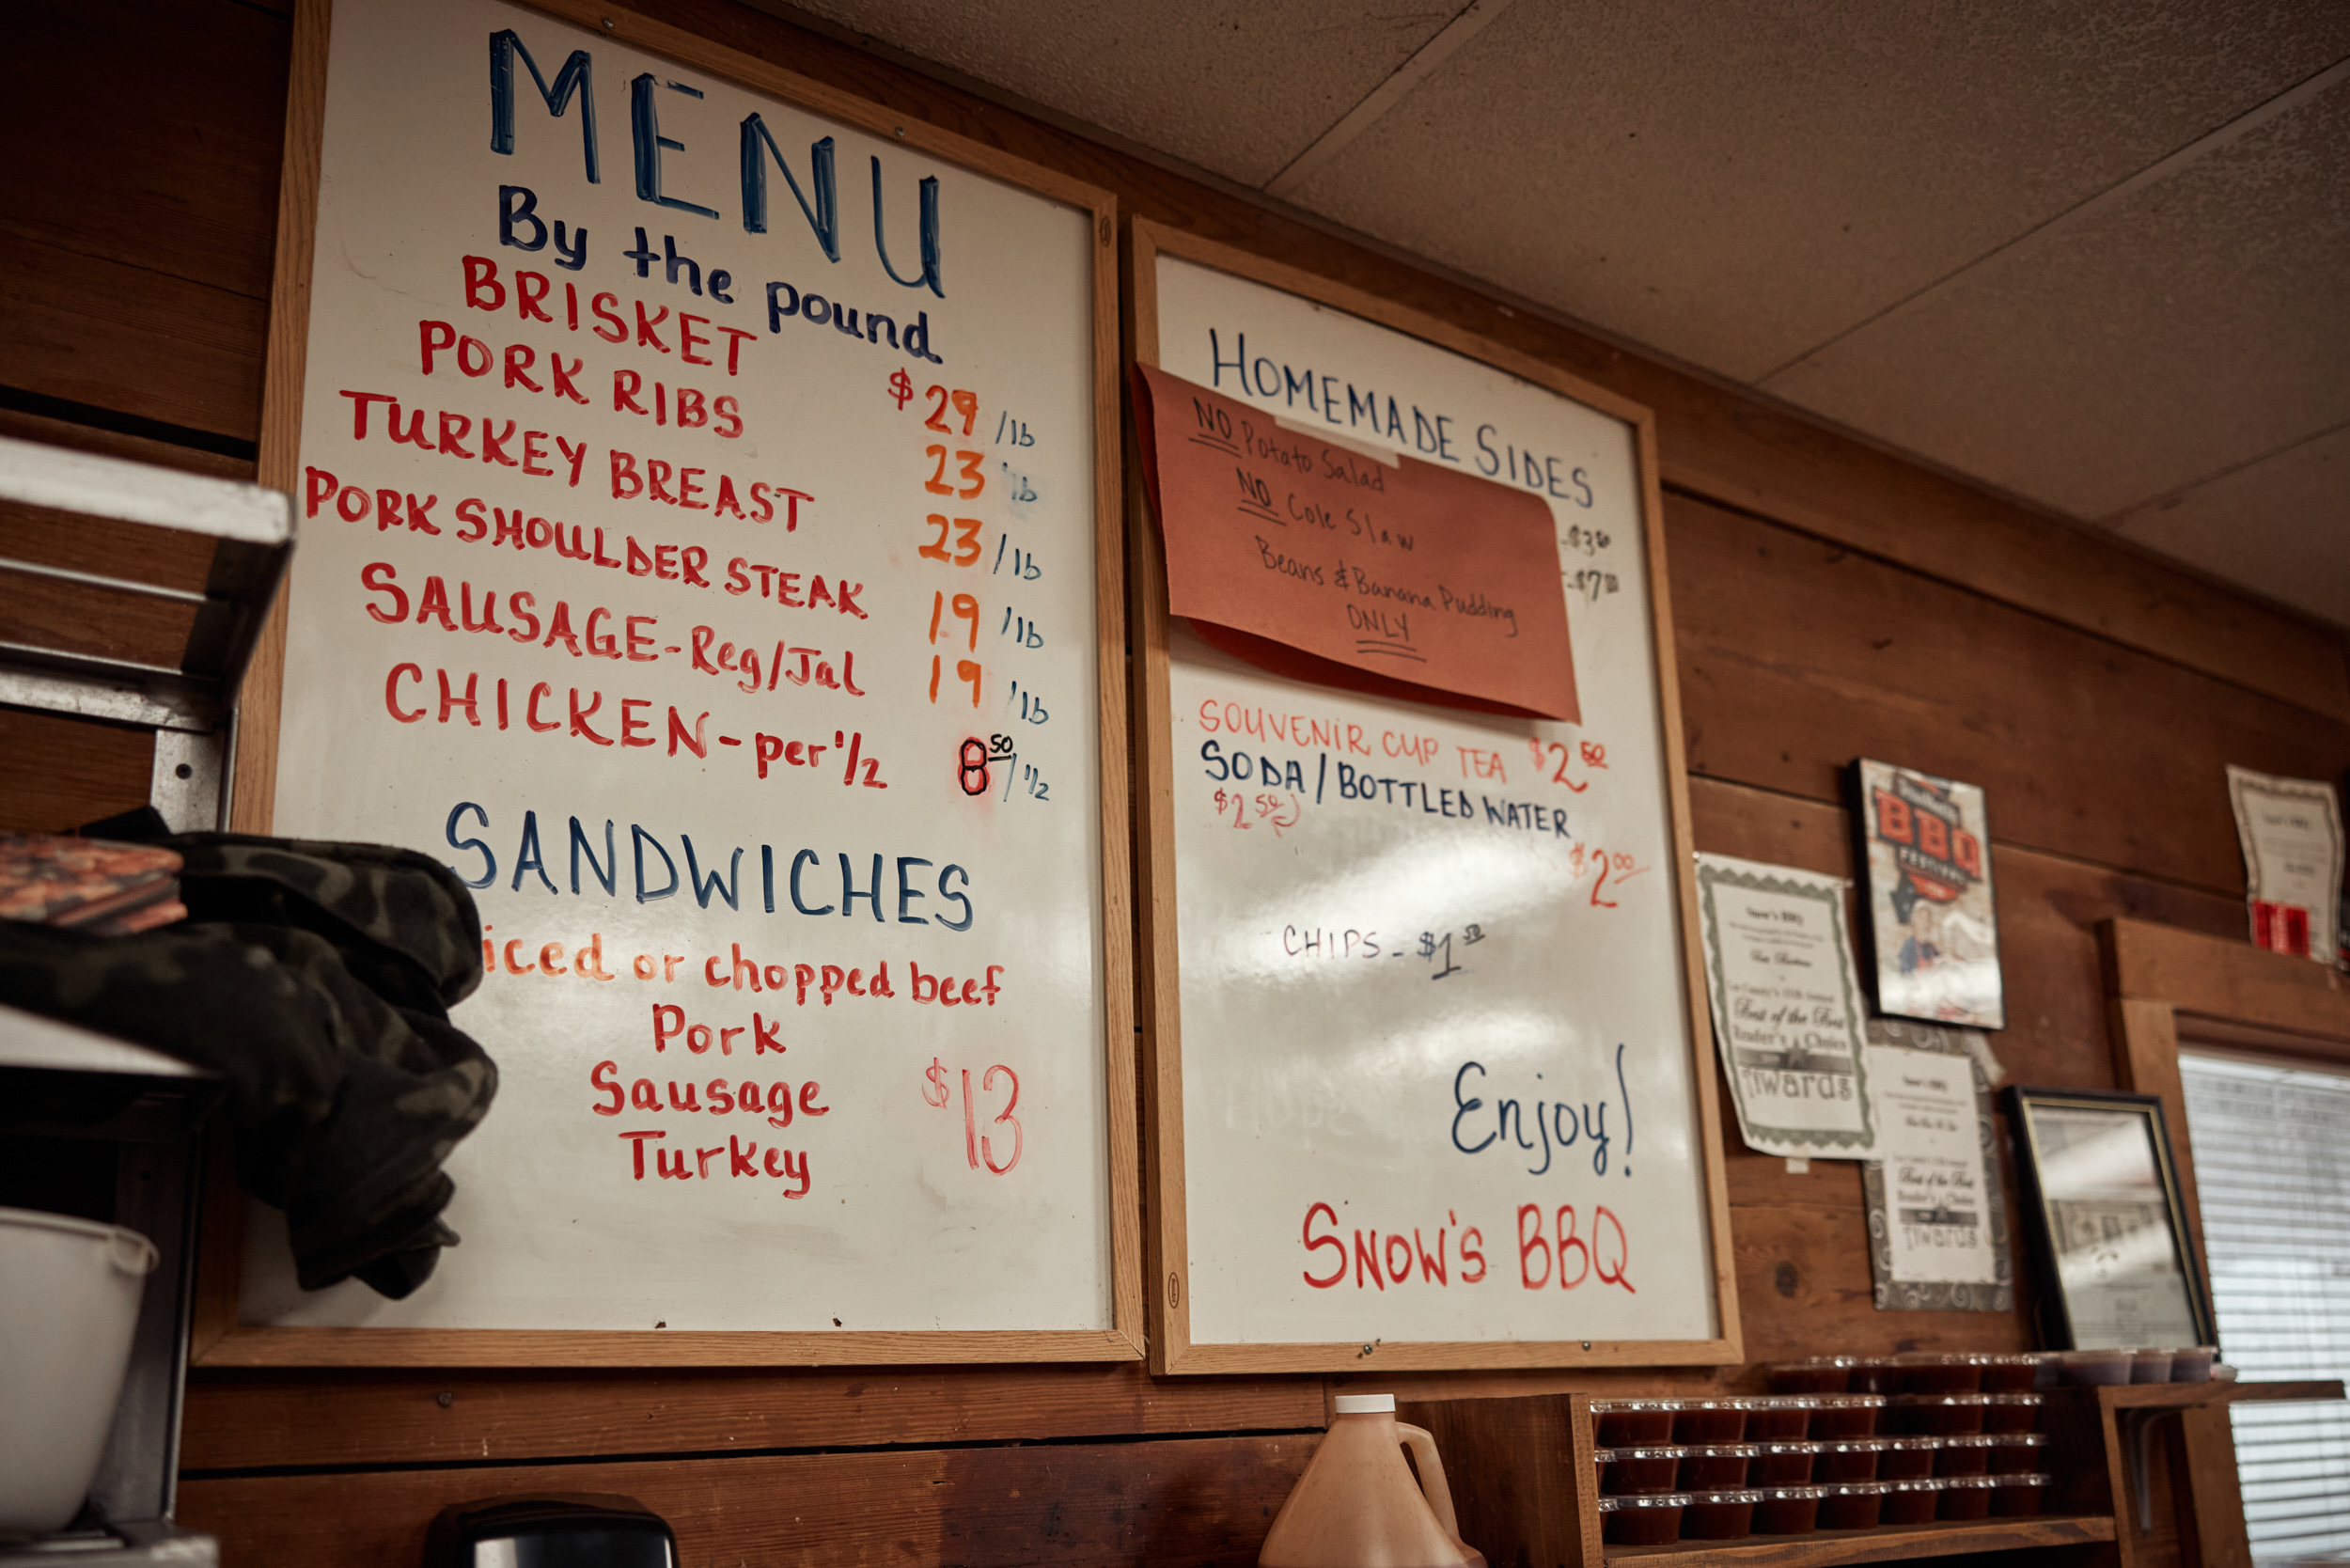 MENU
By the pound
BRISKET $29/lb
PORK RIBS 23 /lb
TURKEY BREAST 23/lb
PORK SHOULDER STEAK 19/lb
SAUSAGE-Reg/Jal 19/lb
CHICKEN-per 1/2 8 50/1/2
SANDWICHES
iced or chopped beef
Pork
Sausage $13
Turkey
HOMEMADE SIDES
NO Potato Salad
NO Cole Slaw
Beans & Banana Pudding
ONLY
SOUVENIR CUP TEA $2 50
SODA/BOTTLED WATER
$2 50
$2 00
CHIPS - $1 50
Enjoy!
SNOW'S BBQ
BBQ
FESTIVAL
Snow's BBQ
Best of the Best
Reader's Choice
Awards
Snow's BBQ
Best of the Best
Reader's Choice
Awards